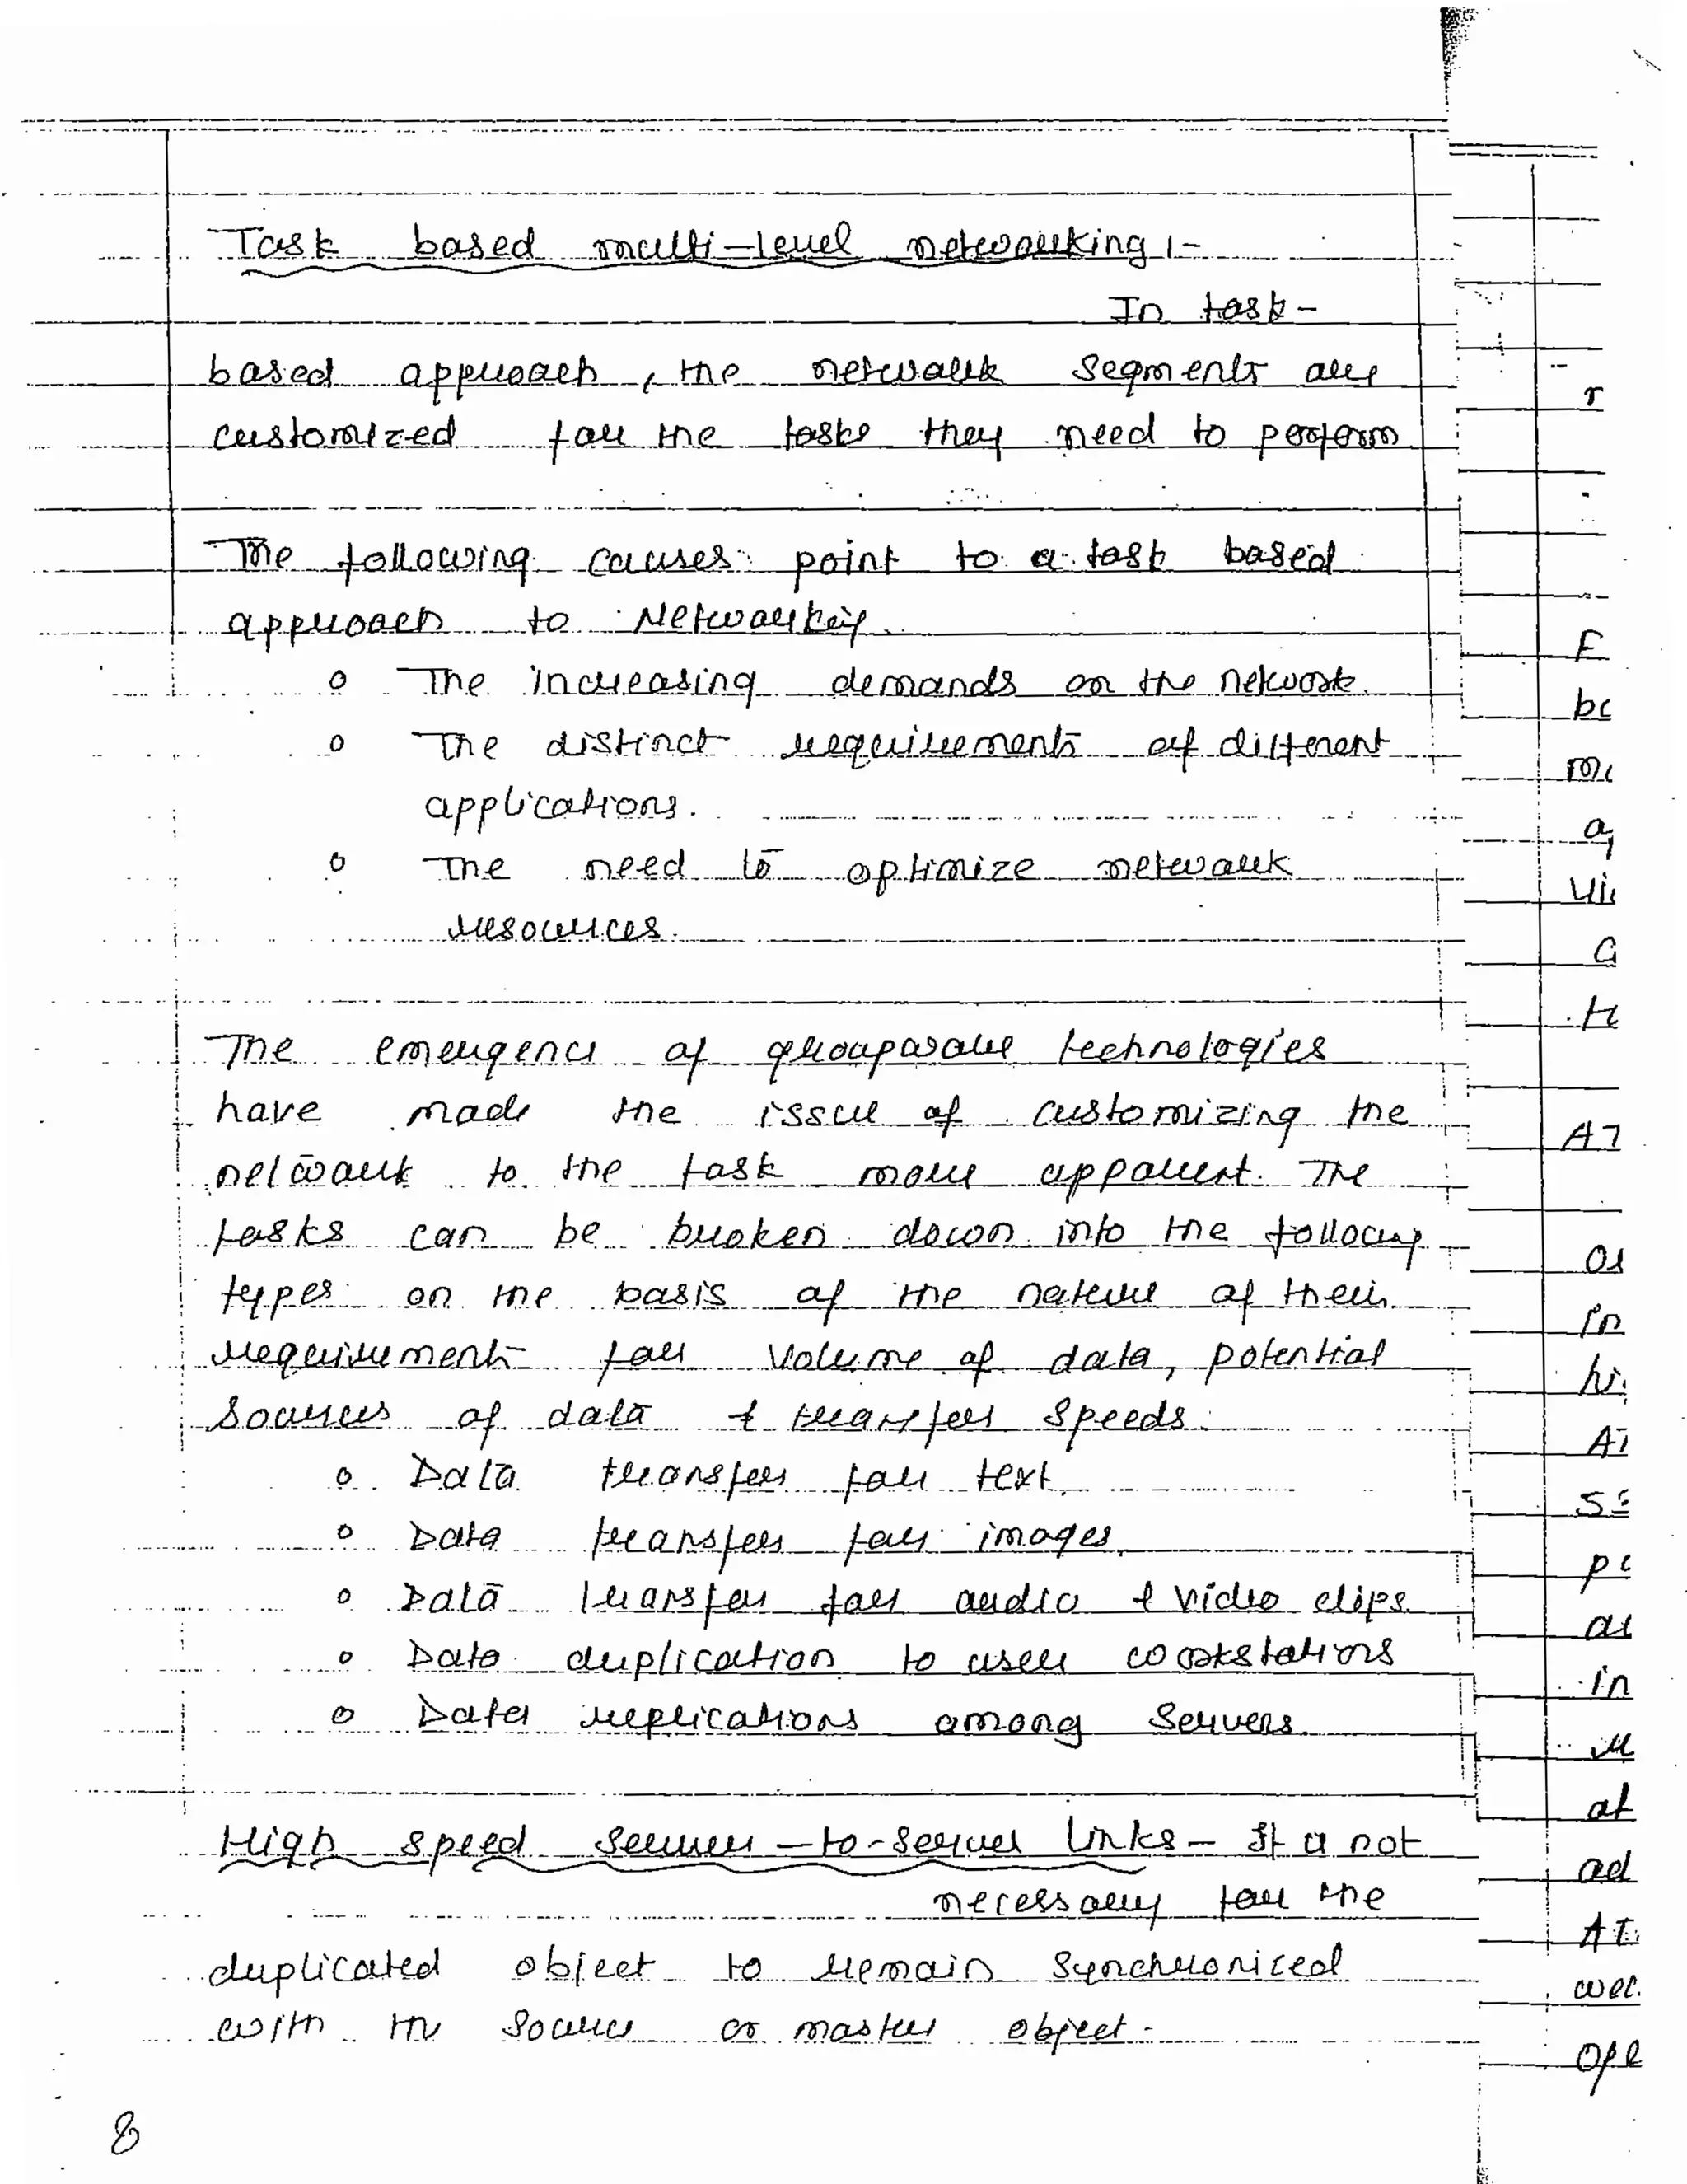 Task based multi-level networking :-
In task-
based approach, the network segments are
customized for the tasks they need to perform
The following causes point to a task based
approach to Networking.
o The increasing demands on the network.
o The distinct requirements of different
applications.
o The need to optimize network
resources.
The emergence of groupware technologies
have made the issue of customizing the
network to the task more apparent. The
tasks can be broken down into the following
types on the basis of the nature of their
requirements for volume of data, potential
sources of data & transfer speeds.
o Data transfer for text.
o Data transfer for images.
o Data transfer for audio & video clips.
o Data duplication to user workstations
o Data replications among servers.
High speed server-to-server links - It is not
necessary for the
duplicated object to remain synchronized
with the source or master object.
8
r
F
bc
a
H
AT
in
hi
pc
in
at
ad
AT
ope